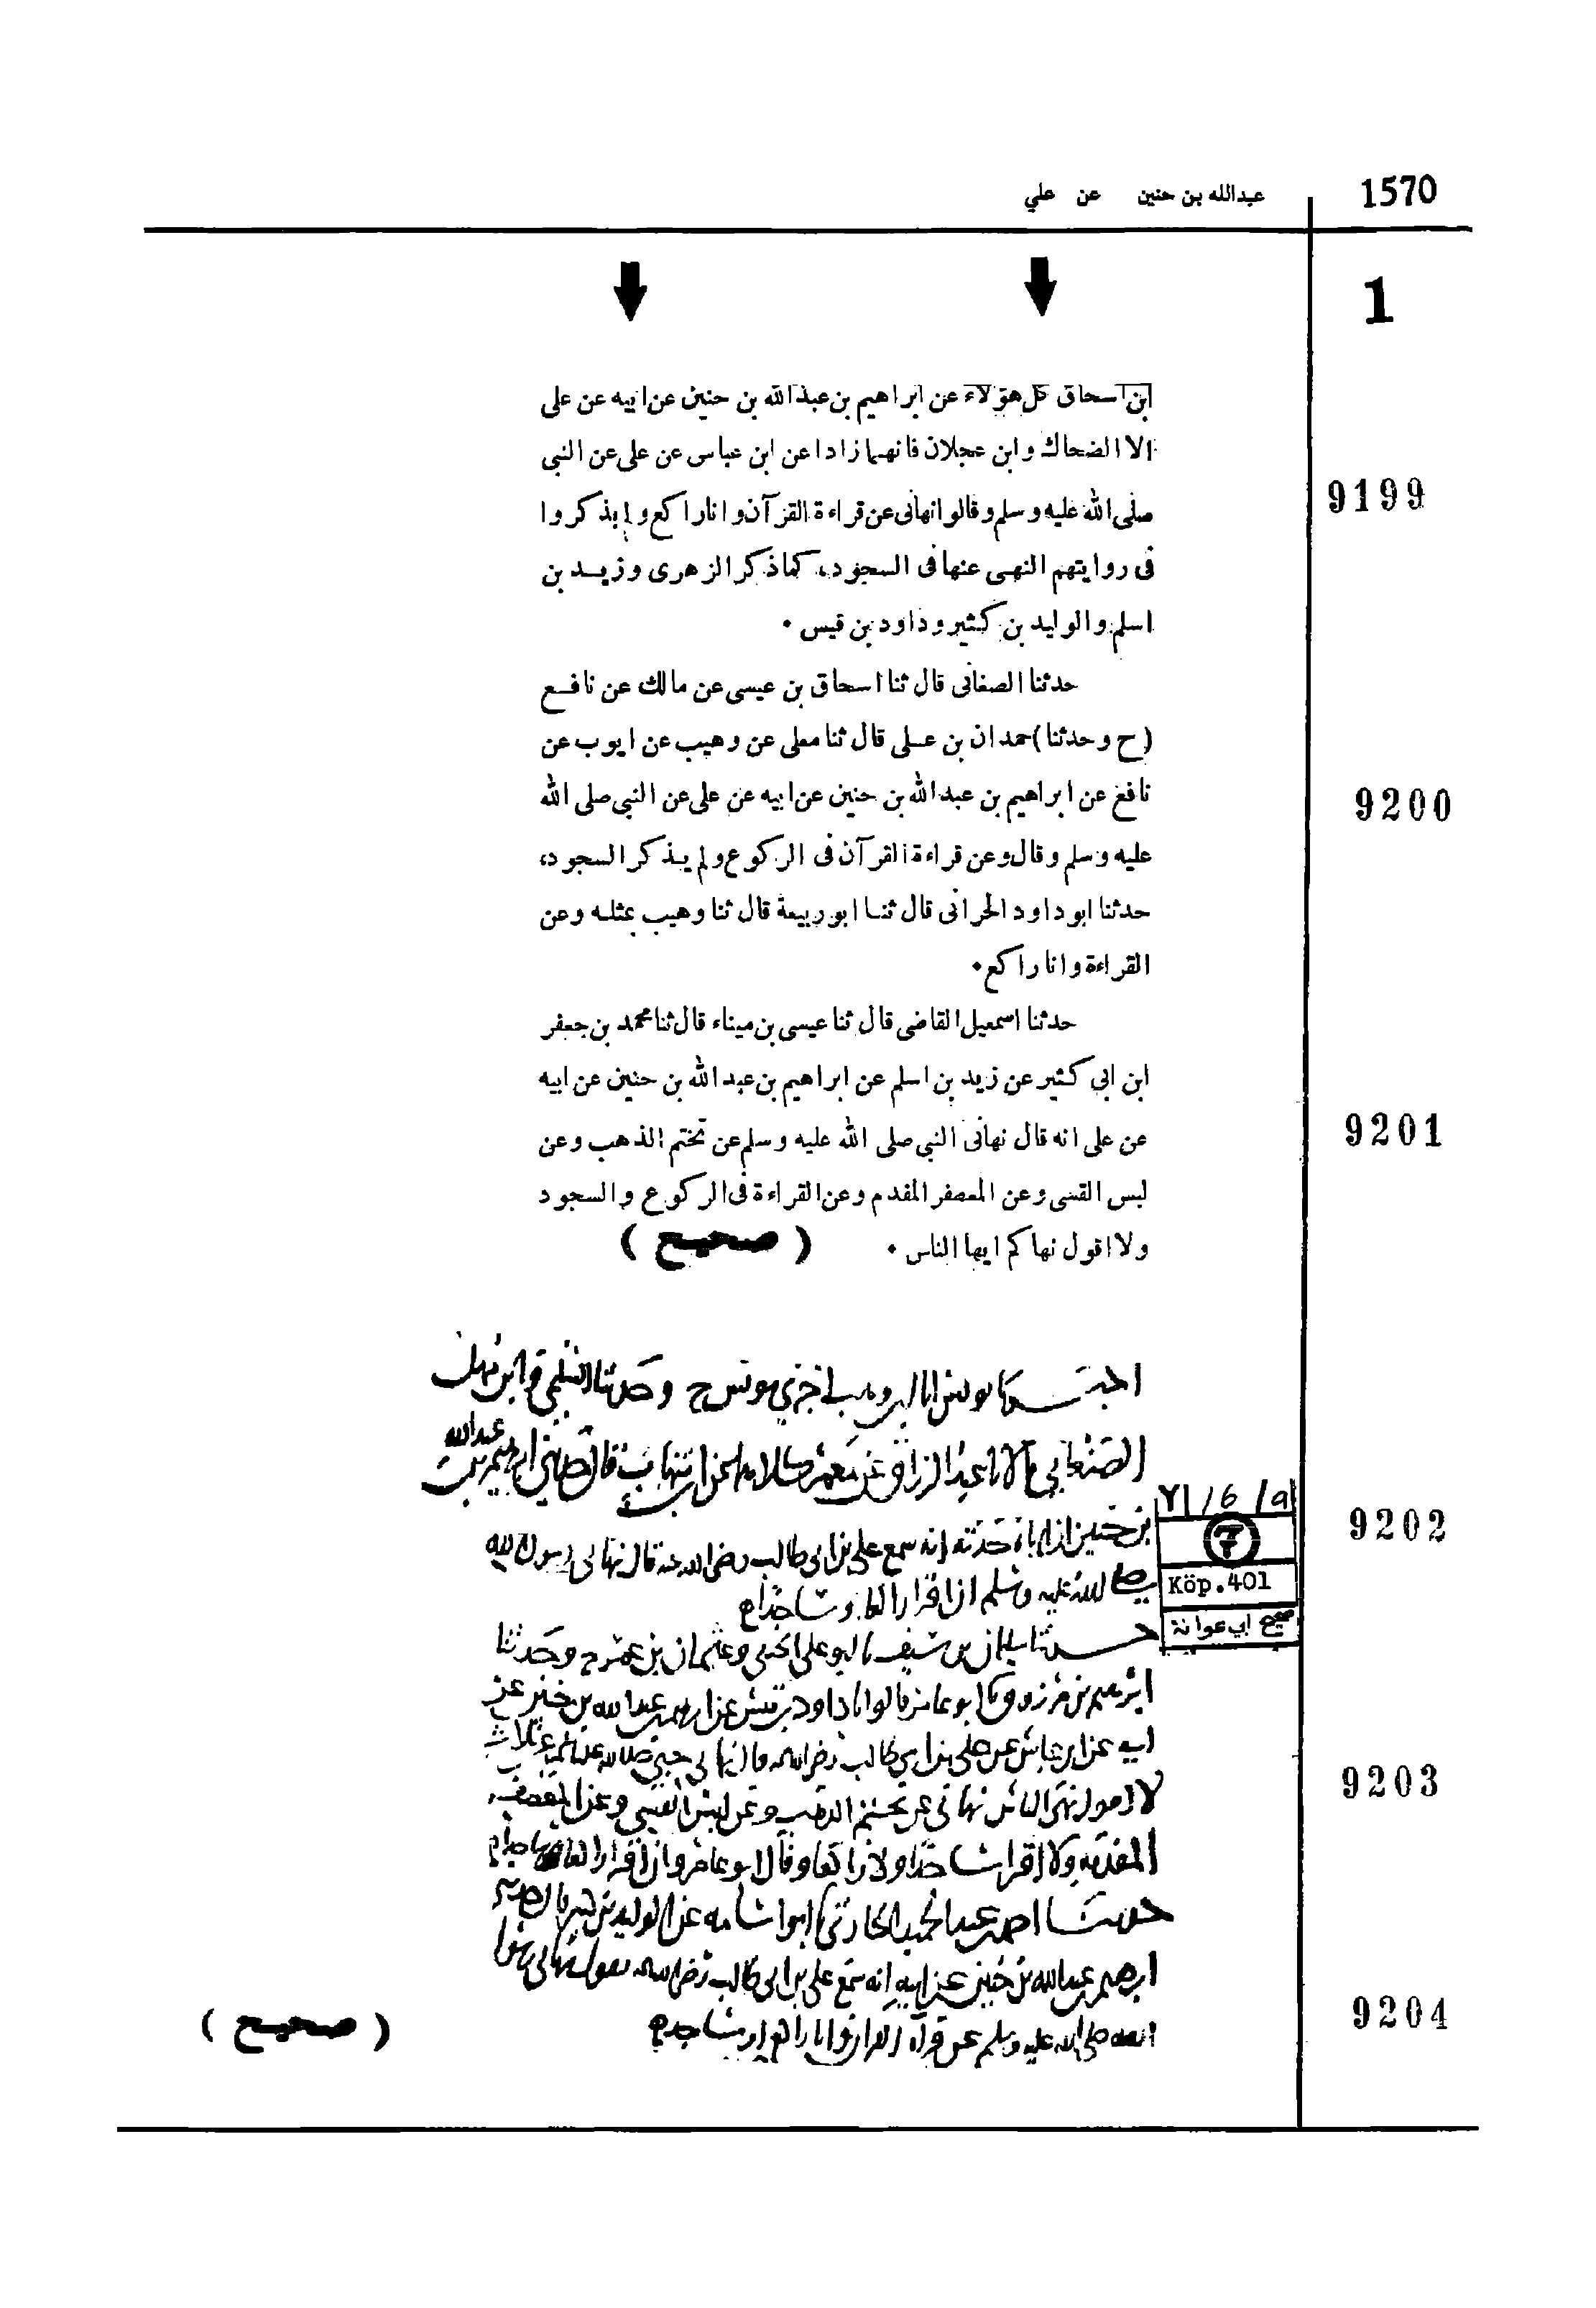 1570
عبدالله بن حنين عن علي
1
ابن اسحاق كل هؤلاء عن ابراهيم بن عبدالله بن حنين عن ابيه عن على
الا الضحاك وابن عجلان فانهما زادا عن ابن عباس عن على عن النبى
9199
صلى الله عليه وسلم وقالوا نهانى عن قراءة القرآن وانا راكع ولم يذكروا
فى روايتهم النهى عنها فى السجود، كما ذكر الزهرى وزيد بن
اسلم والوليد بن كثير وداود بن قيس ٠
حدثنا الصغانى قال ثنا اسحاق بن عيسى عن مالك عن نافع
(ح وحدثنا) حمدان بن على قال ثنا معلى عن وهيب عن ايوب عن
نافع عن ابراهيم بن عبدالله بن حنين عن ابيه عن على عن النبى صلى الله
9200
عليه وسلم وقال وعن قراءة القرآن فى الركوع ولم يذكر السجود،
حدثنا ابو داود الحرانى قال ثنا ابو ربيعة قال ثنا وهيب بمثله وعن
القراءة وانا راكع ٠
حدثنا اسمعيل القاضى قال ثنا عيسى بن ميناء قال ثنا محمد بن جعفر
ابن ابي كثير عن زيد بن اسلم عن ابراهيم بن عبد الله بن حنين عن ابيه
عن على انه قال نهانى النبى صلى الله عليه وسلم عن تختم الذهب وعن
9201
لبس القسى وعن المعصفر المفدم وعن القراءة فى الركوع والسجود
ولا اقول نهاكم ايها الناس ٠ ( صحيح )
وحدثنا السلمي
الصنعاني عبد الرزاق عن معمر
71/6/a
9202
بن حنين ان اباه حدثه انه سمع علي بن ابي طالب رضي الله عنه قال نهاني رسول الله
Köp.401
صلى الله عليه وسلم ان اقرأ راكعا وساجدا
صحيح ابي عوانة
حدثنا سليمان بن سيف ابو علي الحنفي وعثمان بن عمر ح وحدثنا
ابرهيم بن مرزوق ابو عامر قالوا داود بن قيس عن ابرهيم بن عبد الله بن حنين عن
ابيه عن ابن عباس عن علي بن ابي طالب رضي الله عنه قال نهاني حبي صلى الله عليه وسلم عن ثلاث
9203
لا اقول نهى الناس نهاني عن تختم الذهب وعن لبس القسي وعن المعصفر
المفدمه ولا اقرأ ساجدا ولا راكعا وقال ابو عامر وان اقرأ راكعا
حدثنا احمد بن عبد الحميد الحارثي ابو اسامه عن الوليد بن كثير
ابرهيم بن عبد الله بن حنين عن ابيه انه سمع علي بن ابي طالب رضي الله عنه يقول نهاني رسول
9204
الله صلى الله عليه وسلم عن قراة القران وانا راكع او ساجد
( صحيح )